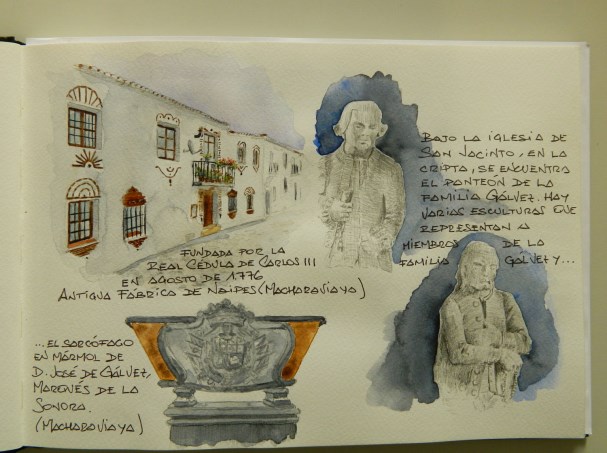 BAJO LA IGLESIA DE
SAN JACINTO, EN LA
CRIPTA, SE ENCUENTRA
EL PANTEÓN DE LA
FAMILIA GÁLVEZ. HAY
VARIAS ESCULTURAS QUE
REPRESENTAN A
MIEMBROS DE LA
FAMILIA GALVEZ Y...
FUNDADA POR LA
REAL CÉDULA DE CARLOS III
EN AGOSTO DE 1.776
ANTIGUA FÁBRICA DE NAIPES (MACHARAVIAYA)
...EL SARCÓFAGO
EN MÁRMOL DE
D. JOSÉ DE GÁLVEZ,
MARQUÉS DE LA
SONORA.
(MACHARAVIAYA)